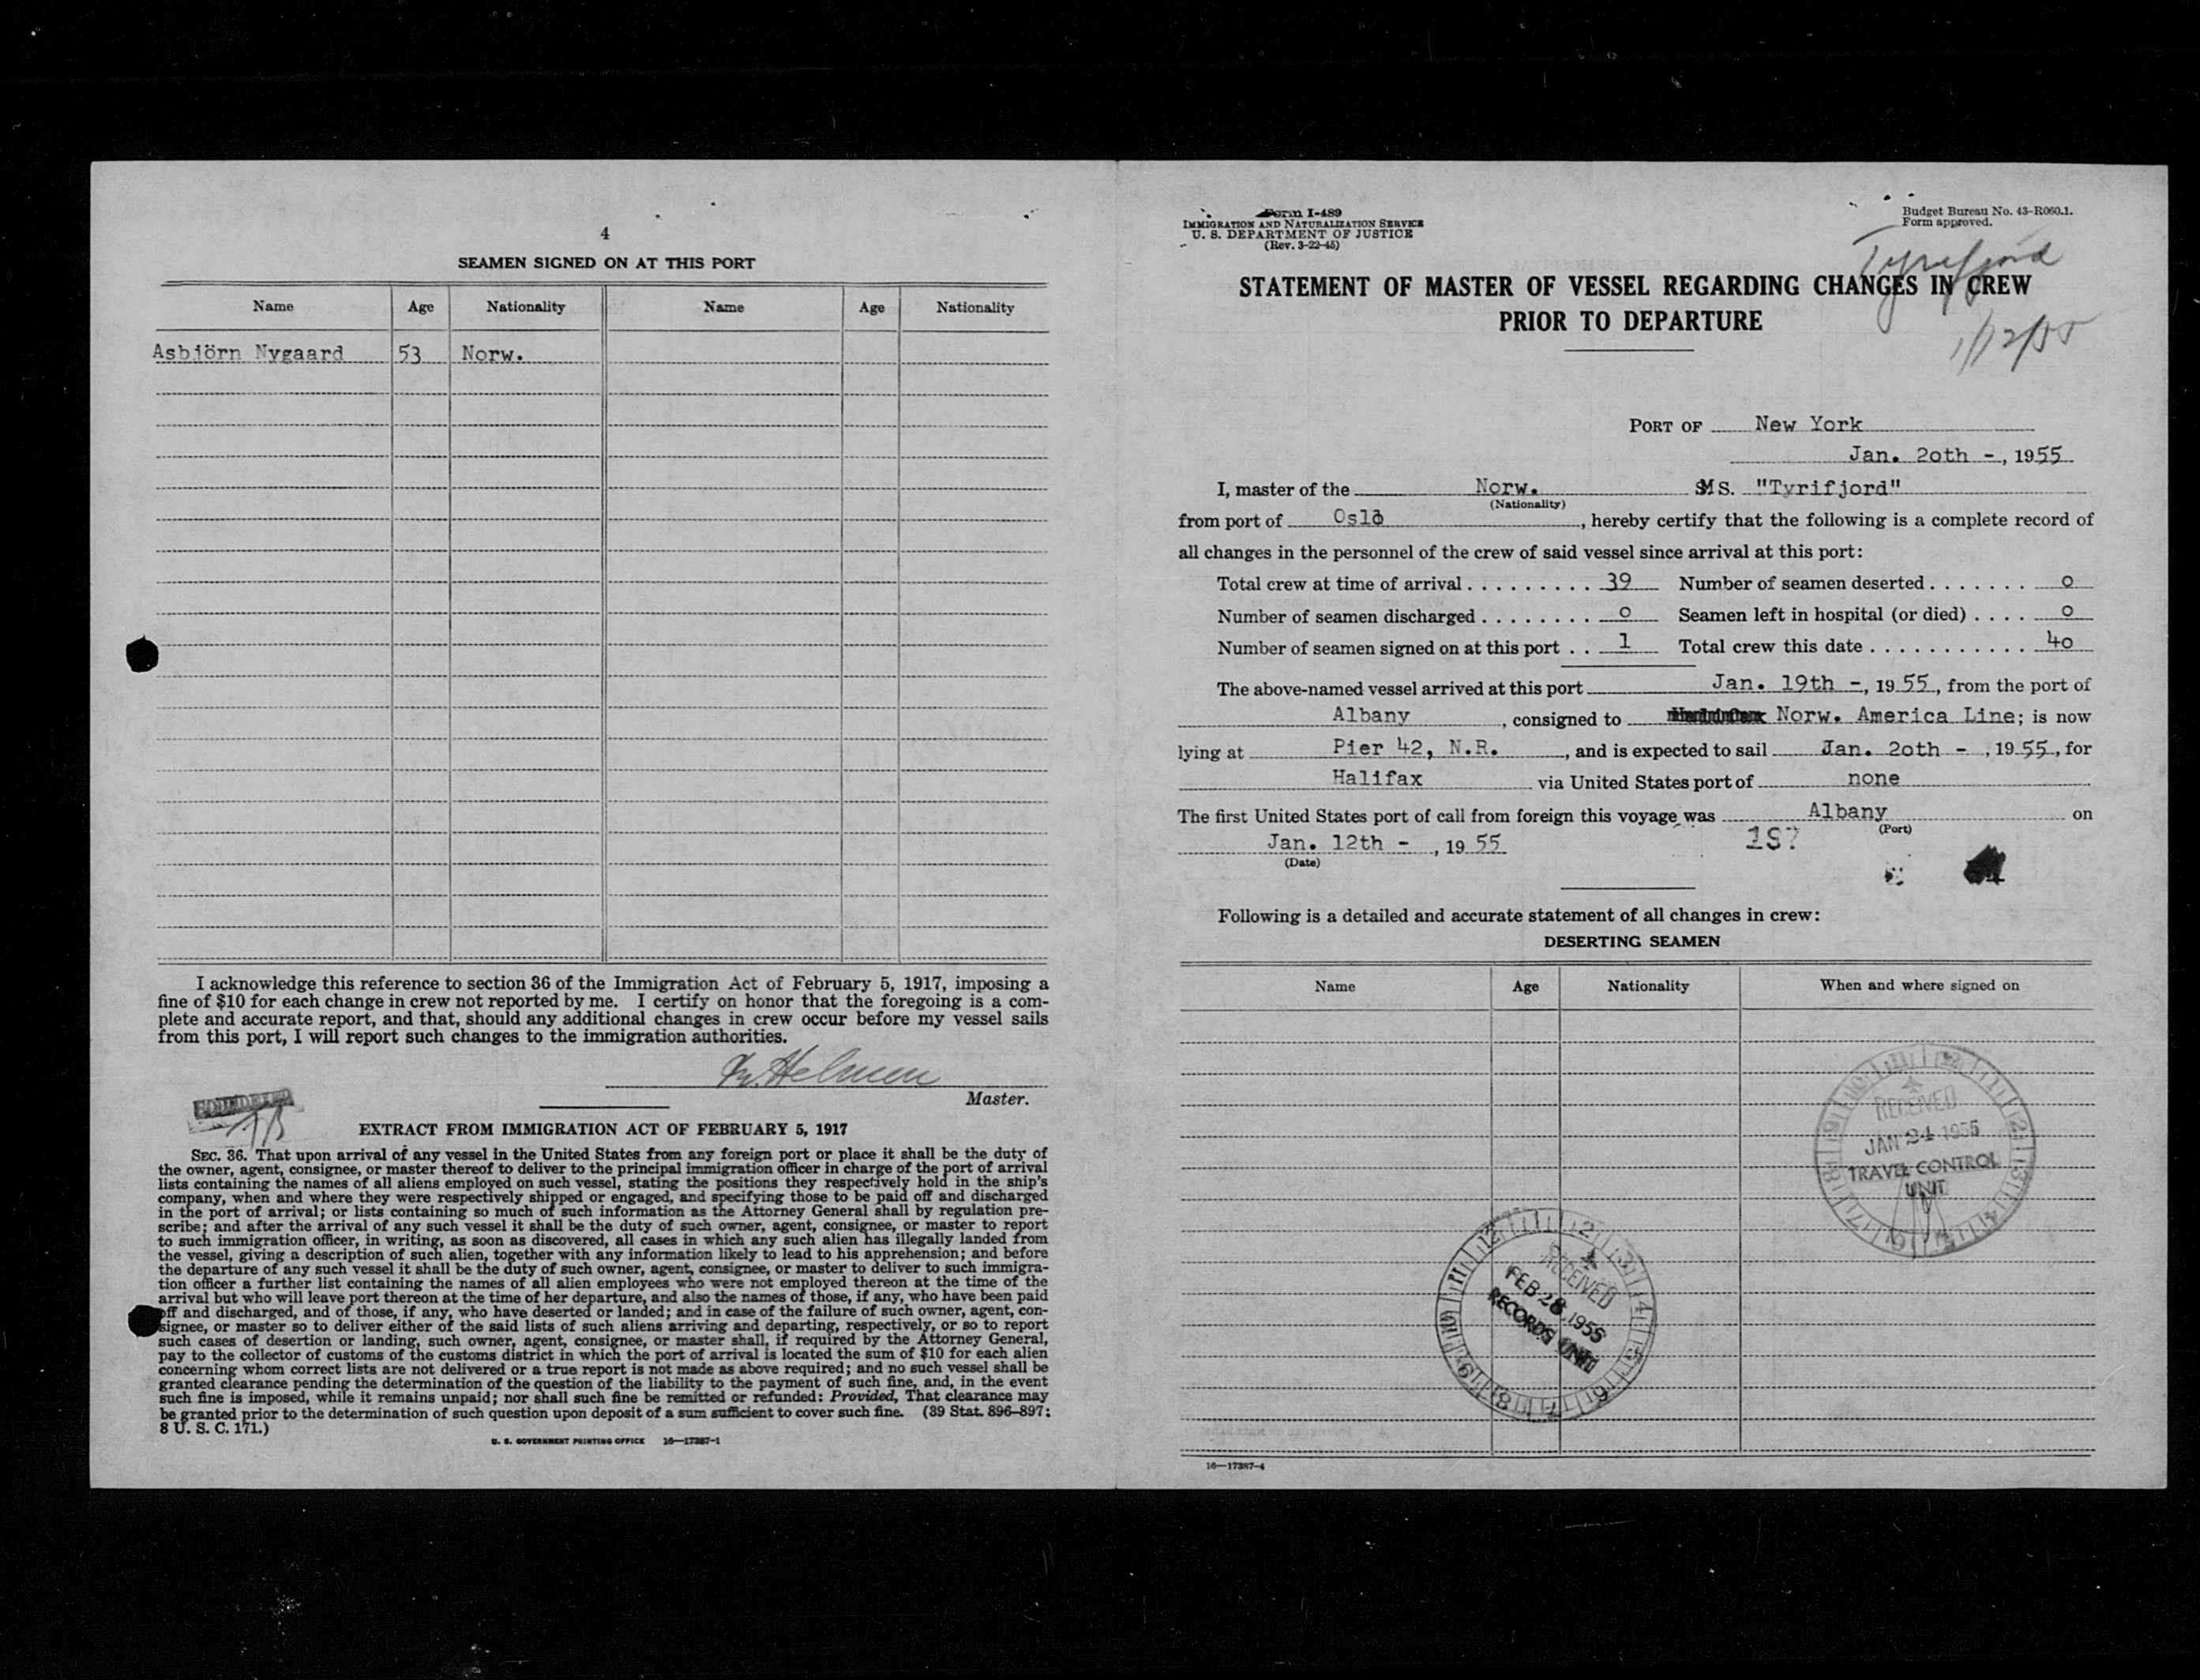 4
SEAMEN SIGNED ON AT THIS PORT
Name Age Nationality Name Age Nationality
Asbjörn Nygaard 53 Norw.
I acknowledge this reference to section 36 of the Immigration Act of February 5, 1917, imposing a
fine of $10 for each change in crew not reported by me. I certify on honor that the foregoing is a com-
plete and accurate report, and that, should any additional changes in crew occur before my vessel sails
from this port, I will report such changes to the immigration authorities.
Master.
EXTRACT FROM IMMIGRATION ACT OF FEBRUARY 5, 1917
SEC. 36. That upon arrival of any vessel in the United States from any foreign port or place it shall be the duty of
the owner, agent, consignee, or master thereof to deliver to the principal immigration officer in charge of the port of arrival
lists containing the names of all aliens employed on such vessel, stating the positions they respectively hold in the ship's
company, when and where they were respectively shipped or engaged, and specifying those to be paid off and discharged
in the port of arrival; or lists containing so much of such information as the Attorney General shall by regulation pre-
scribe; and after the arrival of any such vessel it shall be the duty of such owner, agent, consignee, or master to report
to such immigration officer, in writing, as soon as discovered, all cases in which any such alien has illegally landed from
the vessel, giving a description of such alien, together with any information likely to lead to his apprehension; and before
the departure of any such vessel it shall be the duty of such owner, agent, consignee, or master to deliver to such immigra-
tion officer a further list containing the names of all alien employees who were not employed thereon at the time of the
arrival but who will leave port thereon at the time of her departure, and also the names of those, if any, who have been paid
off and discharged, and of those, if any, who have deserted or landed; and in case of the failure of such owner, agent, con-
signee, or master so to deliver either of the said lists of such aliens arriving and departing, respectively, or so to report
such cases of desertion or landing, such owner, agent, consignee, or master shall, if required by the Attorney General,
pay to the collector of customs of the customs district in which the port of arrival is located the sum of $10 for each alien
concerning whom correct lists are not delivered or a true report is not made as above required; and no such vessel shall be
granted clearance pending the determination of the question of the liability to the payment of such fine, and, in the event
such fine is imposed, while it remains unpaid; nor shall such fine be remitted or refunded: Provided, That clearance may
be granted prior to the determination of such question upon deposit of a sum sufficient to cover such fine. (39 Stat. 896–897;
8 U. S. C. 171.)
U. S. GOVERNMENT PRINTING OFFICE 16—17387-1
Form I-489
IMMIGRATION AND NATURALIZATION SERVICE
U. S. DEPARTMENT OF JUSTICE
(Rev. 3-22-45)
Budget Bureau No. 43-R060.1.
Form approved.
Tyrifjord
1/12/55
STATEMENT OF MASTER OF VESSEL REGARDING CHANGES IN CREW
PRIOR TO DEPARTURE
PORT OF New York
Jan. 20th -, 1955
I, master of the Norw. MS. "Tyrifjord"
(Nationality)
from port of Oslo, hereby certify that the following is a complete record of
all changes in the personnel of the crew of said vessel since arrival at this port:
Total crew at time of arrival . . . . . . . . . . 39 Number of seamen deserted . . . . . . . 0
Number of seamen discharged . . . . . . . . 0 Seamen left in hospital (or died) . . . . 0
Number of seamen signed on at this port . . 1 Total crew this date . . . . . . . . . . . 40
The above-named vessel arrived at this port Jan. 19th -, 1955, from the port of
Albany, consigned to Norw. America Line; is now
lying at Pier 42, N.R., and is expected to sail Jan. 20th -, 1955, for
Halifax via United States port of none
The first United States port of call from foreign this voyage was Albany on
(Port)
Jan. 12th -, 1955
(Date)
Following is a detailed and accurate statement of all changes in crew:
DESERTING SEAMEN
Name Age Nationality When and where signed on
RECEIVED
JAN 24 1955
TRAVEL CONTROL
UNIT
RECEIVED
FEB 28 1955
RECORDS UNIT
16—17387-4